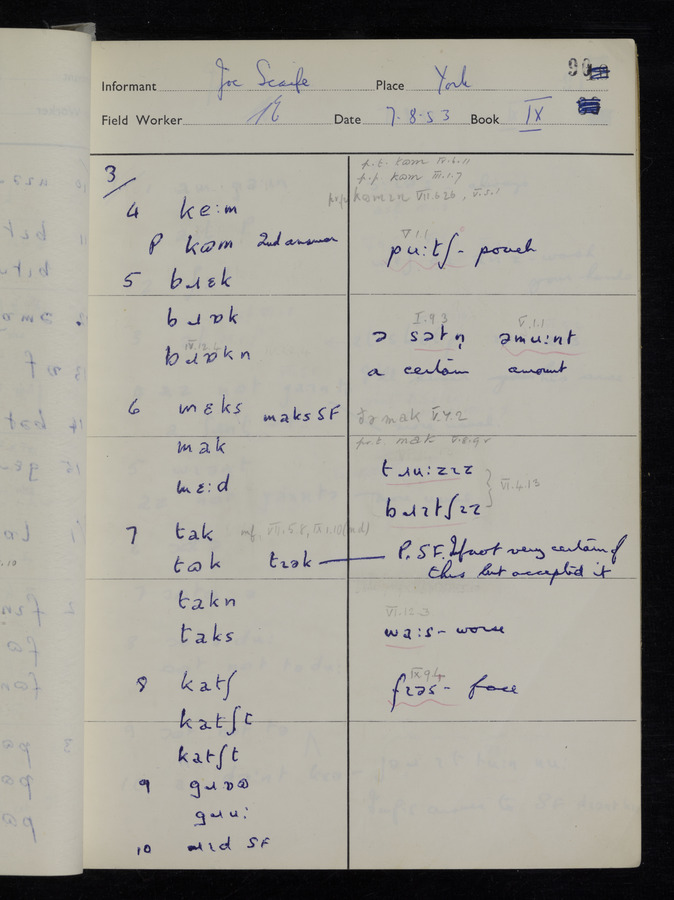 90
Informant Joe Scaife Place York
Field Worker Date 7-8-53 Book IX
3/
4 ke:m
P kʊm 2nd answer
5 bɹɛk
bɹɒk
IV.12.4
bɹɒkn
6 mɛks maks SF
mak
mɛ:d
7 tak
tʊk tɪək
takn
taks
8 katʃ
katʃt
katʃt
9 gɹɒʊ
gɹu:
10 ɹɪd SF
p.t. kʊm IV.6.11
p.p. kʊm III.1.7
kʊmɪn VII.6.26, V.5.1
V 1.1
pu:tʃ - pouch
I.9.3 V.1.1
ə sətn̩ əmu:nt
a certain amount
ðə mak V.4.2
p.t. mak
tɹu:zɪz
VI.4.13
bɹɪtʃɪz
P. SF. If not very certain of
this but accepted it
VI.12.3
wa:s - worse
IX 9.4
fɪəs - face